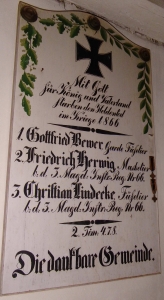 Mit Gott
für König und Vaterland
starben den Heldentod
im Kriege 1866
1. Gottfried Bewer, Garde Füselier
2. Friedrich Herwig, Musketier
b. d. 3. Magd. Inftr. Rg. Nr. 66.
3. Christian Lindecke, Füselier
b. d. 3. Magd. Inftr. Rg. Nr. 66.
2. Tim. 4.7.8.
Die dankbare Gemeinde.